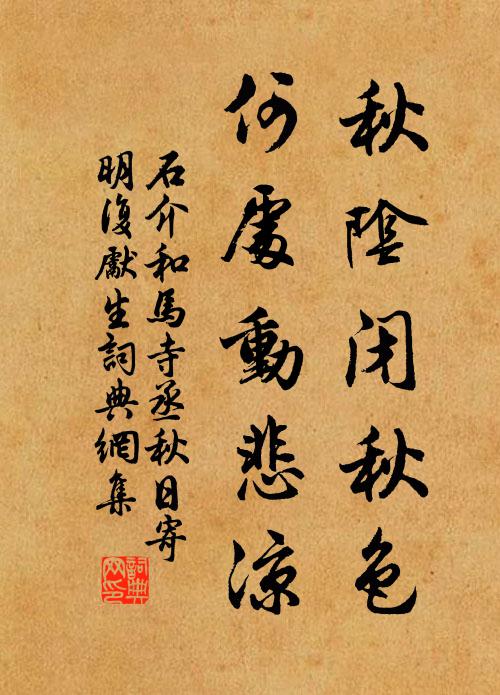 秋陰閉秋色
何處動悲涼
石介和馬寺丞秋日寄
明復獻生詞典網集
詞典
网印